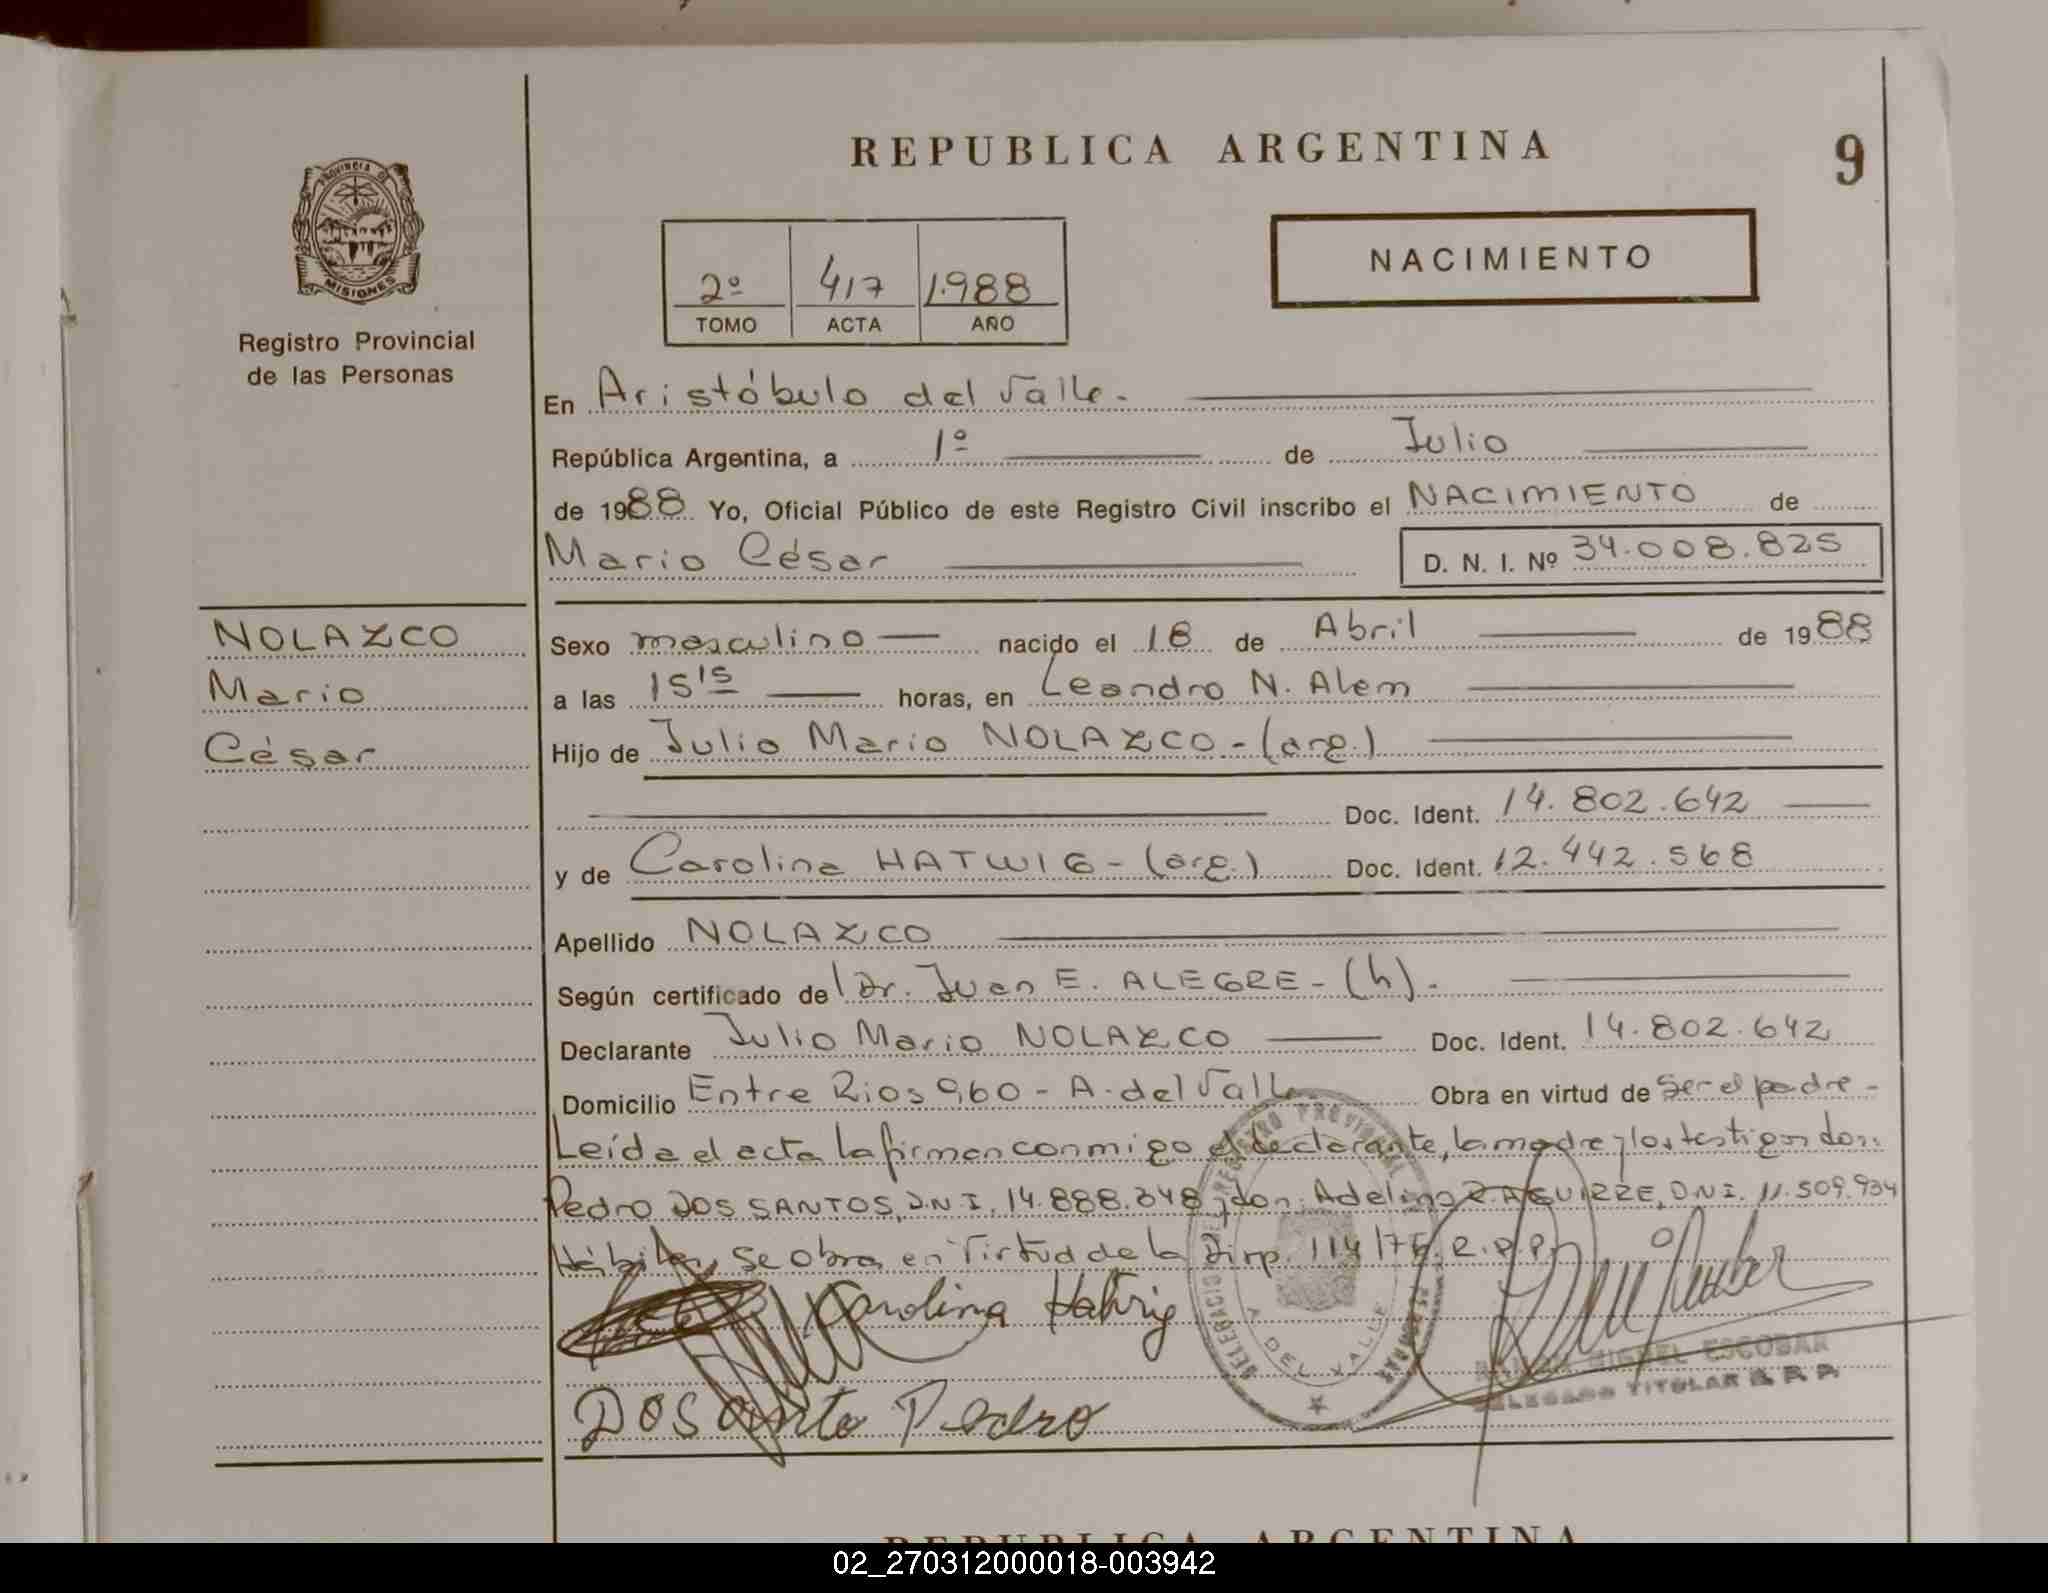 REPUBLICA ARGENTINA
9
PROVINCIA DE
MISIONES
Registro Provincial
de las Personas
2º 417 1.988
TOMO ACTA AÑO
NACIMIENTO
En Aristóbulo del Valle.
República Argentina, a 1º de Julio
de 1988 Yo, Oficial Público de este Registro Civil inscribo el NACIMIENTO de
Mario César D. N. I. Nº 34.008.825
NOLAZCO
Mario
César
Sexo masculino nacido el 18 de Abril de 1988
a las 15 15 horas, en Leandro N. Alem
Hijo de Julio Mario NOLAZCO - (arg.)
Doc. Ident. 14.802.642
y de Carolina HATWIG - (arg.) Doc. Ident. 12.442.568
Apellido NOLAZCO
Según certificado de Dr. Juan E. ALEGRE - (h).
Declarante Julio Mario NOLAZCO Doc. Ident. 14.802.642
Domicilio Entre Rios 960 - A. del Valle Obra en virtud de ser el padre -
Leída el acta la firman conmigo el declarante, la madre y los testigos don:
Pedro DOS SANTOS, D.N.I. 14.888.348 y don: Adelino R. AGUIRRE, D.N.I. 11.509.934
Hábiles, se obra en virtud de la Disp. 114/76. R.P.P.
Carolina Hatvig
DELEGACION REGISTRO PROVINCIAL DE LAS PERSONAS
A. DEL VALLE
RAMON MIGUEL ESCOBAR
DELEGADO TITULAR R. P. P.
Dosanto Pedro
REPUBLICA ARGENTINA
02_270312000018-003942